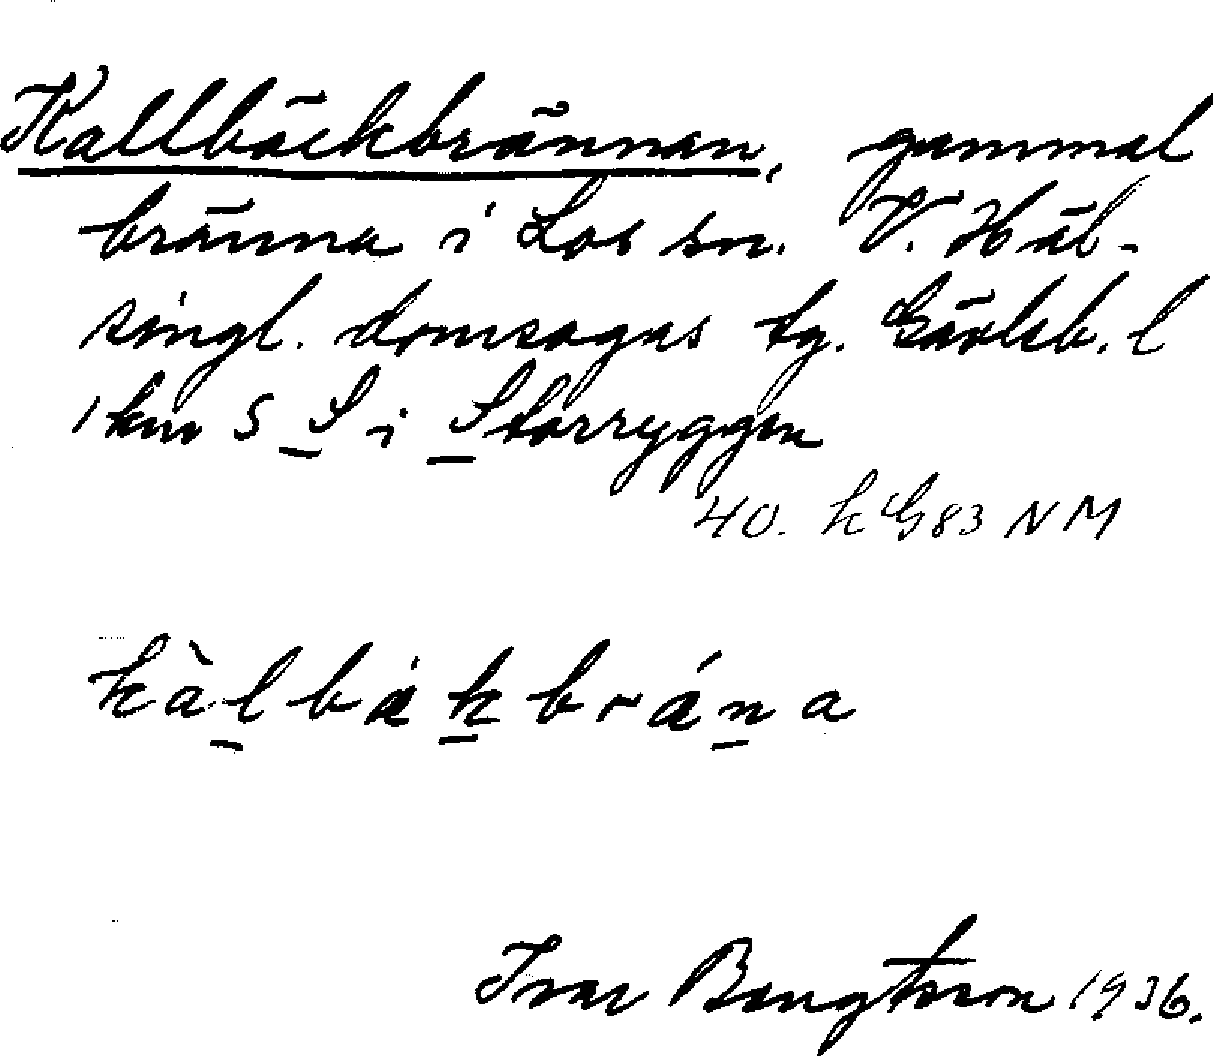 Kallbäckbrännan, gammal
bränna i Los sn. V. Häl-
singl. domsagas tg. Gävleb. l
1 km S S i Storryggen
40. k G83 NM
kàlbákbrána
Ivar Bengtsson 1936.